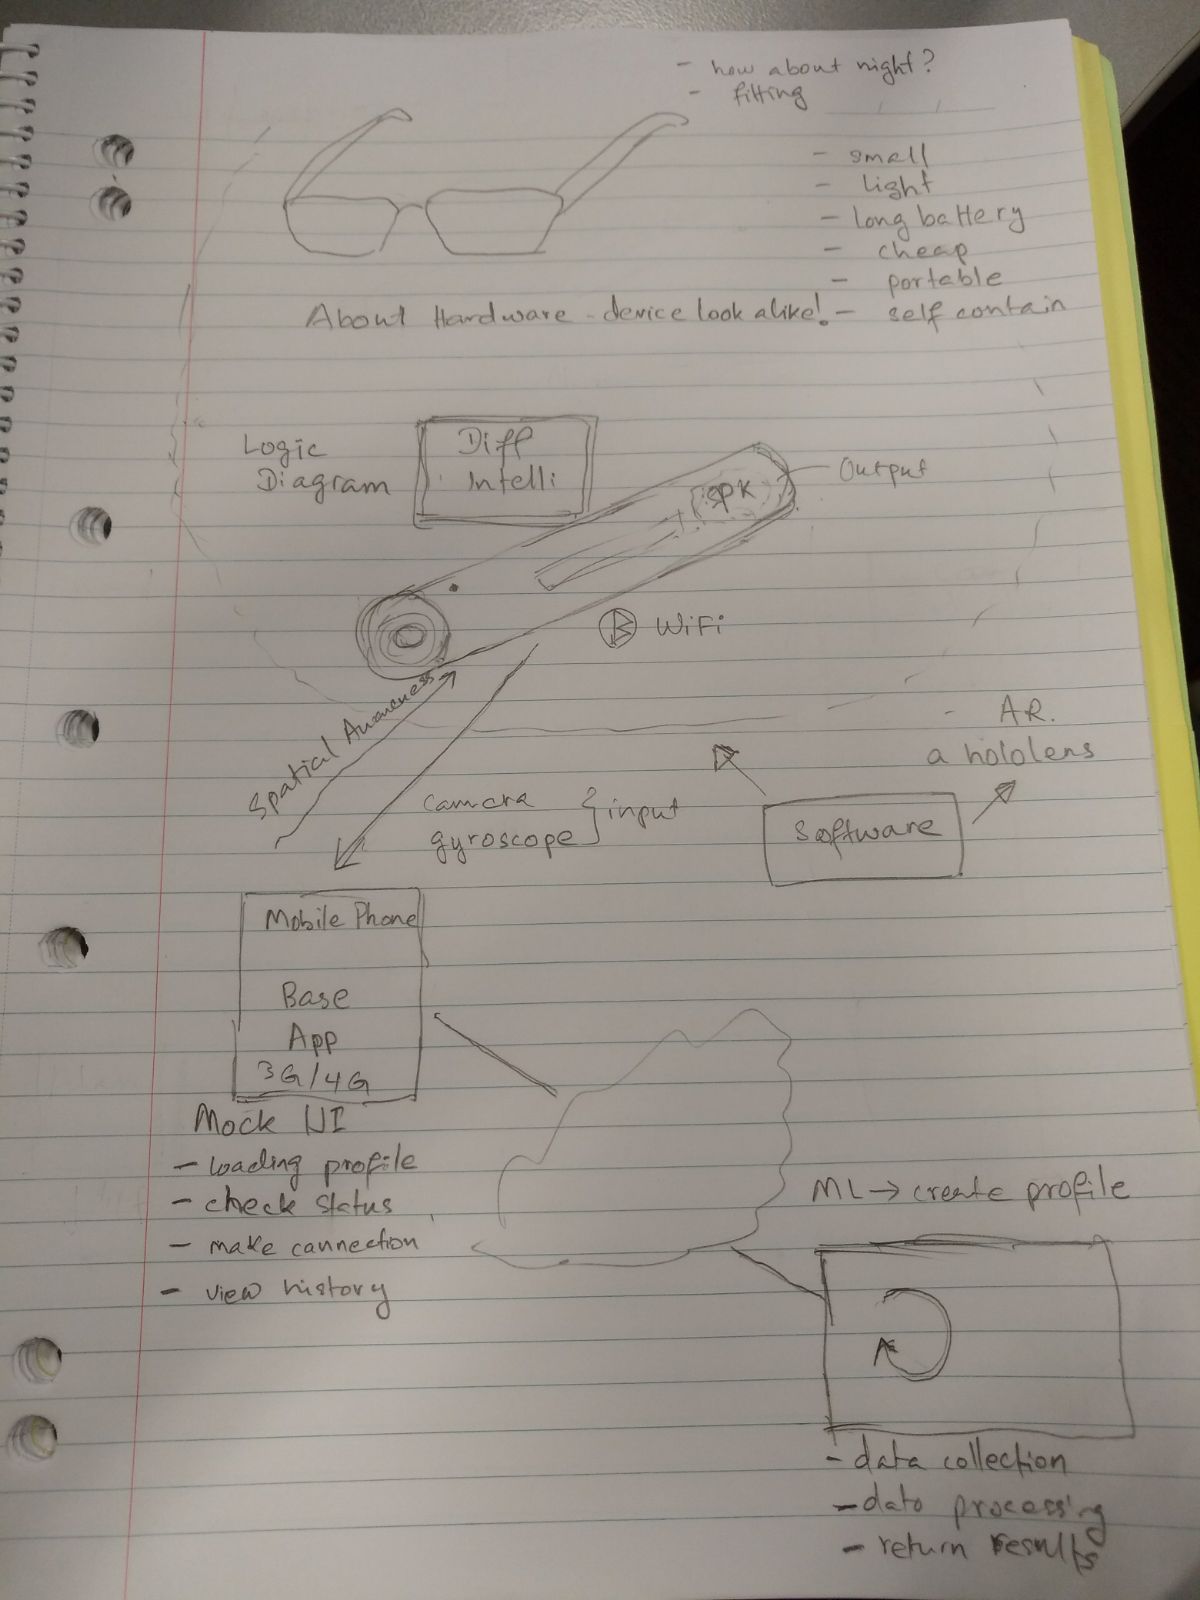 - how about night?
- fitting
- small
- light
- long battery
- cheap
- portable
About Hardware - device look alike! - self contain
Logic
Diagram
Diff
Intelli
SPK
Output
B WiFi
Spatial Awareness
- AR.
a hololens
camera
gyroscope } input
Software
Mobile Phone
Base
App
3G/4G
Mock UI
- loading profile
- check status
- make cannection
- view history
ML → create profile
- data collection
- data processing
- return results